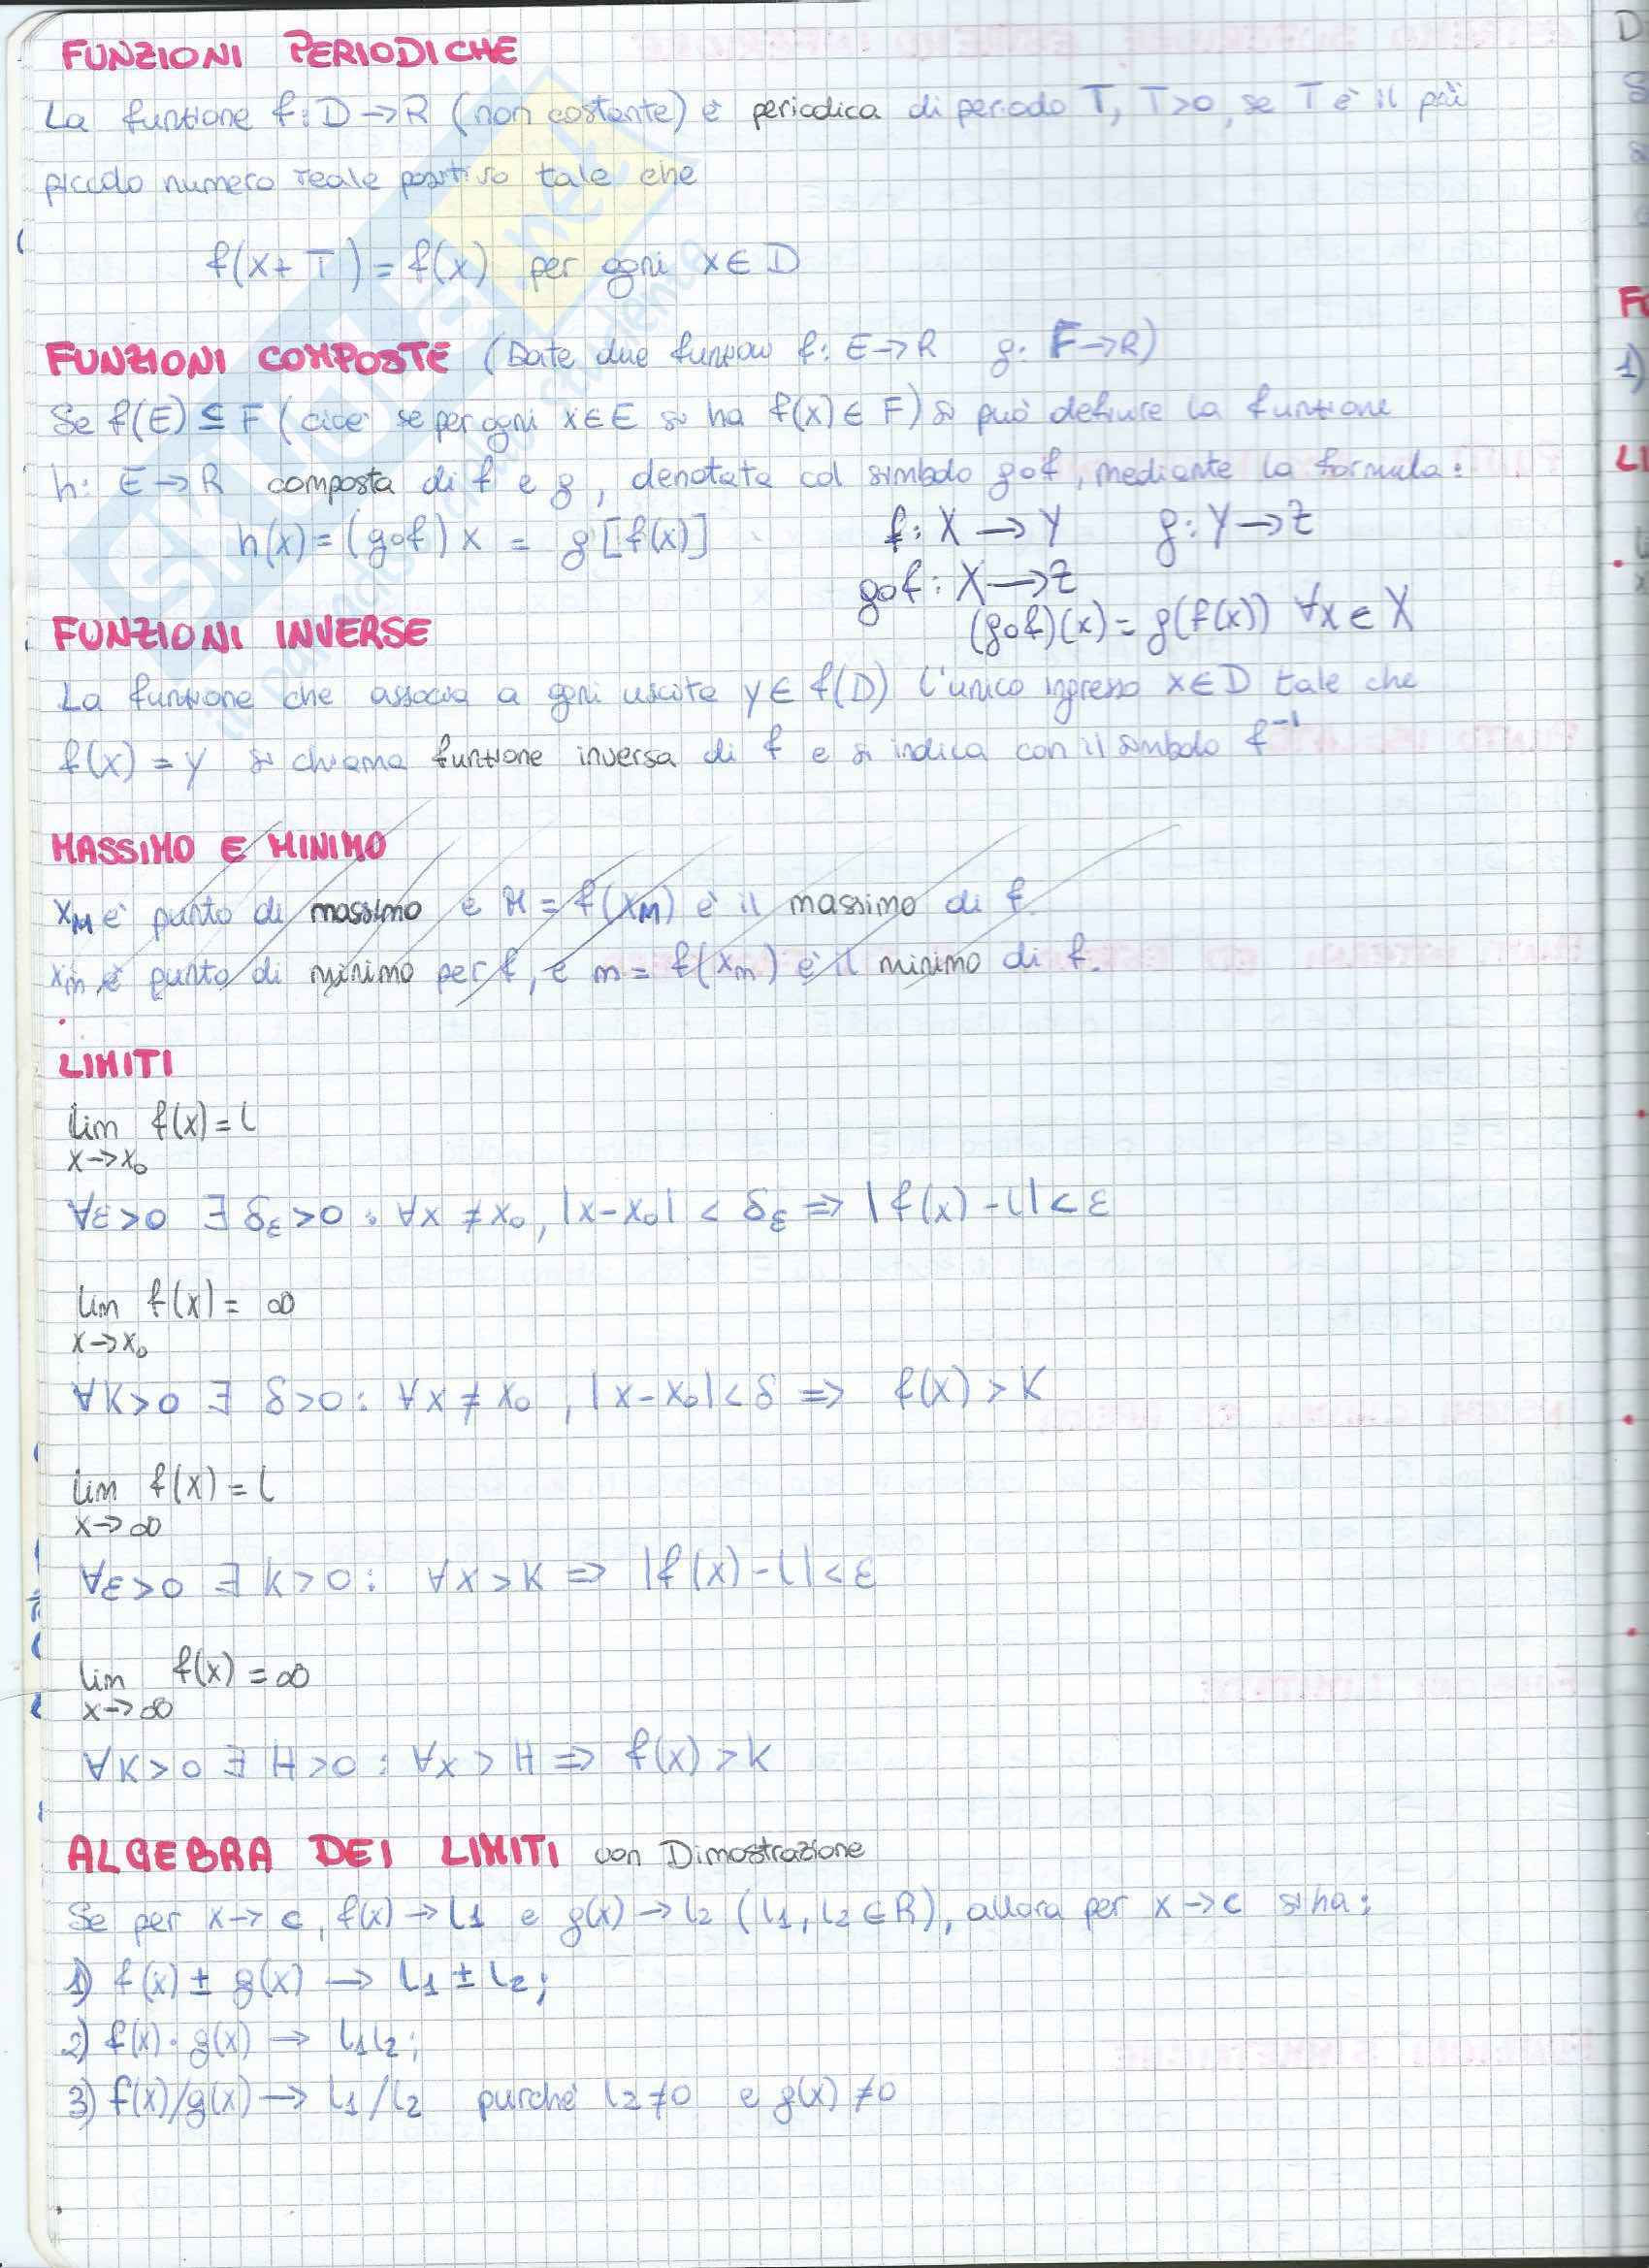 FUNZIONI PERIODICHE
La funzione f: D → R (non costante) è periodica di periodo T, T>0, se T è il più
piccolo numero reale positivo tale che
f(x+T) = f(x) per ogni x ∈ D
FUNZIONI COMPOSTE (Date due funzioni f: E → R g: F → R)
Se f(E) ⊆ F (cioè se per ogni x ∈ E si ha f(x) ∈ F) si può definire la funzione
h: E → R composta di f e g, denotata col simbolo g∘f, mediante la formula:
h(x) = (g∘f) x = g[f(x)]
f: X → Y g: Y → Z
g∘f: X → Z
(g∘f)(x) = g(f(x)) ∀x ∈ X
FUNZIONI INVERSE
La funzione che associa a ogni uscita y ∈ f(D) l'unico ingresso x ∈ D tale che
f(x) = y si chiama funzione inversa di f e si indica con il simbolo f⁻¹
MASSIMO E MINIMO
x_M è punto di massimo e M = f(x_M) è il massimo di f.
x_m è punto di minimo per f, e m = f(x_m) è il minimo di f.
LIMITI
lim f(x) = l
x→x₀
∀ε>0 ∃ δ_ε>0 : ∀x ≠ x₀, |x-x₀| < δ_ε ⇒ |f(x) - l| < ε
lim f(x) = ∞
x→x₀
∀K>0 ∃ δ>0 : ∀x ≠ x₀, |x-x₀| < δ ⇒ f(x) > K
lim f(x) = l
x→∞
∀ε>0 ∃ K>0 : ∀x > K ⇒ |f(x) - l| < ε
lim f(x) = ∞
x→∞
∀K>0 ∃ H>0 : ∀x > H ⇒ f(x) > K
ALGEBRA DEI LIMITI con Dimostrazione
Se per x → c, f(x) → l₁ e g(x) → l₂ (l₁, l₂ ∈ R), allora per x → c si ha:
1) f(x) ± g(x) → l₁ ± l₂;
2) f(x) · g(x) → l₁l₂;
3) f(x)/g(x) → l₁/l₂ purché l₂ ≠ 0 e g(x) ≠ 0